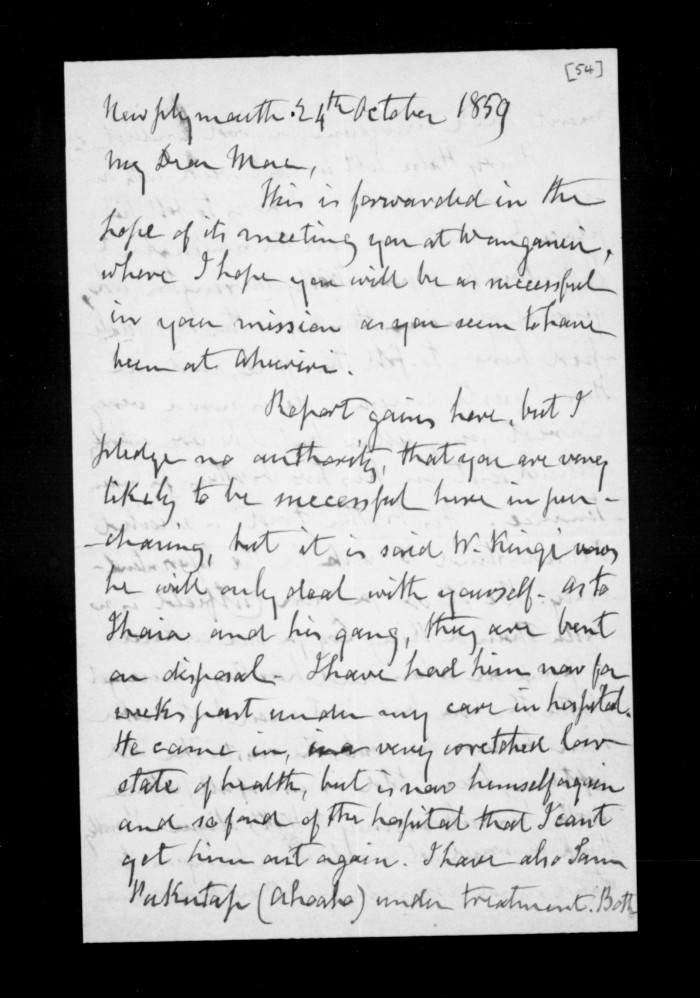 [54]
New plymouth. 24th October 1859
My Dear Mac,
This is forwarded in the
hope of its meeting you at Wanganui,
where I hope you will be as successful
in your mission as you seem to have
been at Ahuriri.
Report gains here, but I
pledge no authority, that you are very
likely to be successful here in pur-
-chasing, but it is said W. Kingi vows
he will only deal with yourself - as to
Ihaia and his gang, they are bent
on disposal. I have had him now for
weeks past under my care in hospital.
He came in, in a very wretched low
state of health, but is now himself again
and so fond of the hospital that I cant
get him out again. I have also
(Ahoaho) under treatment. Both